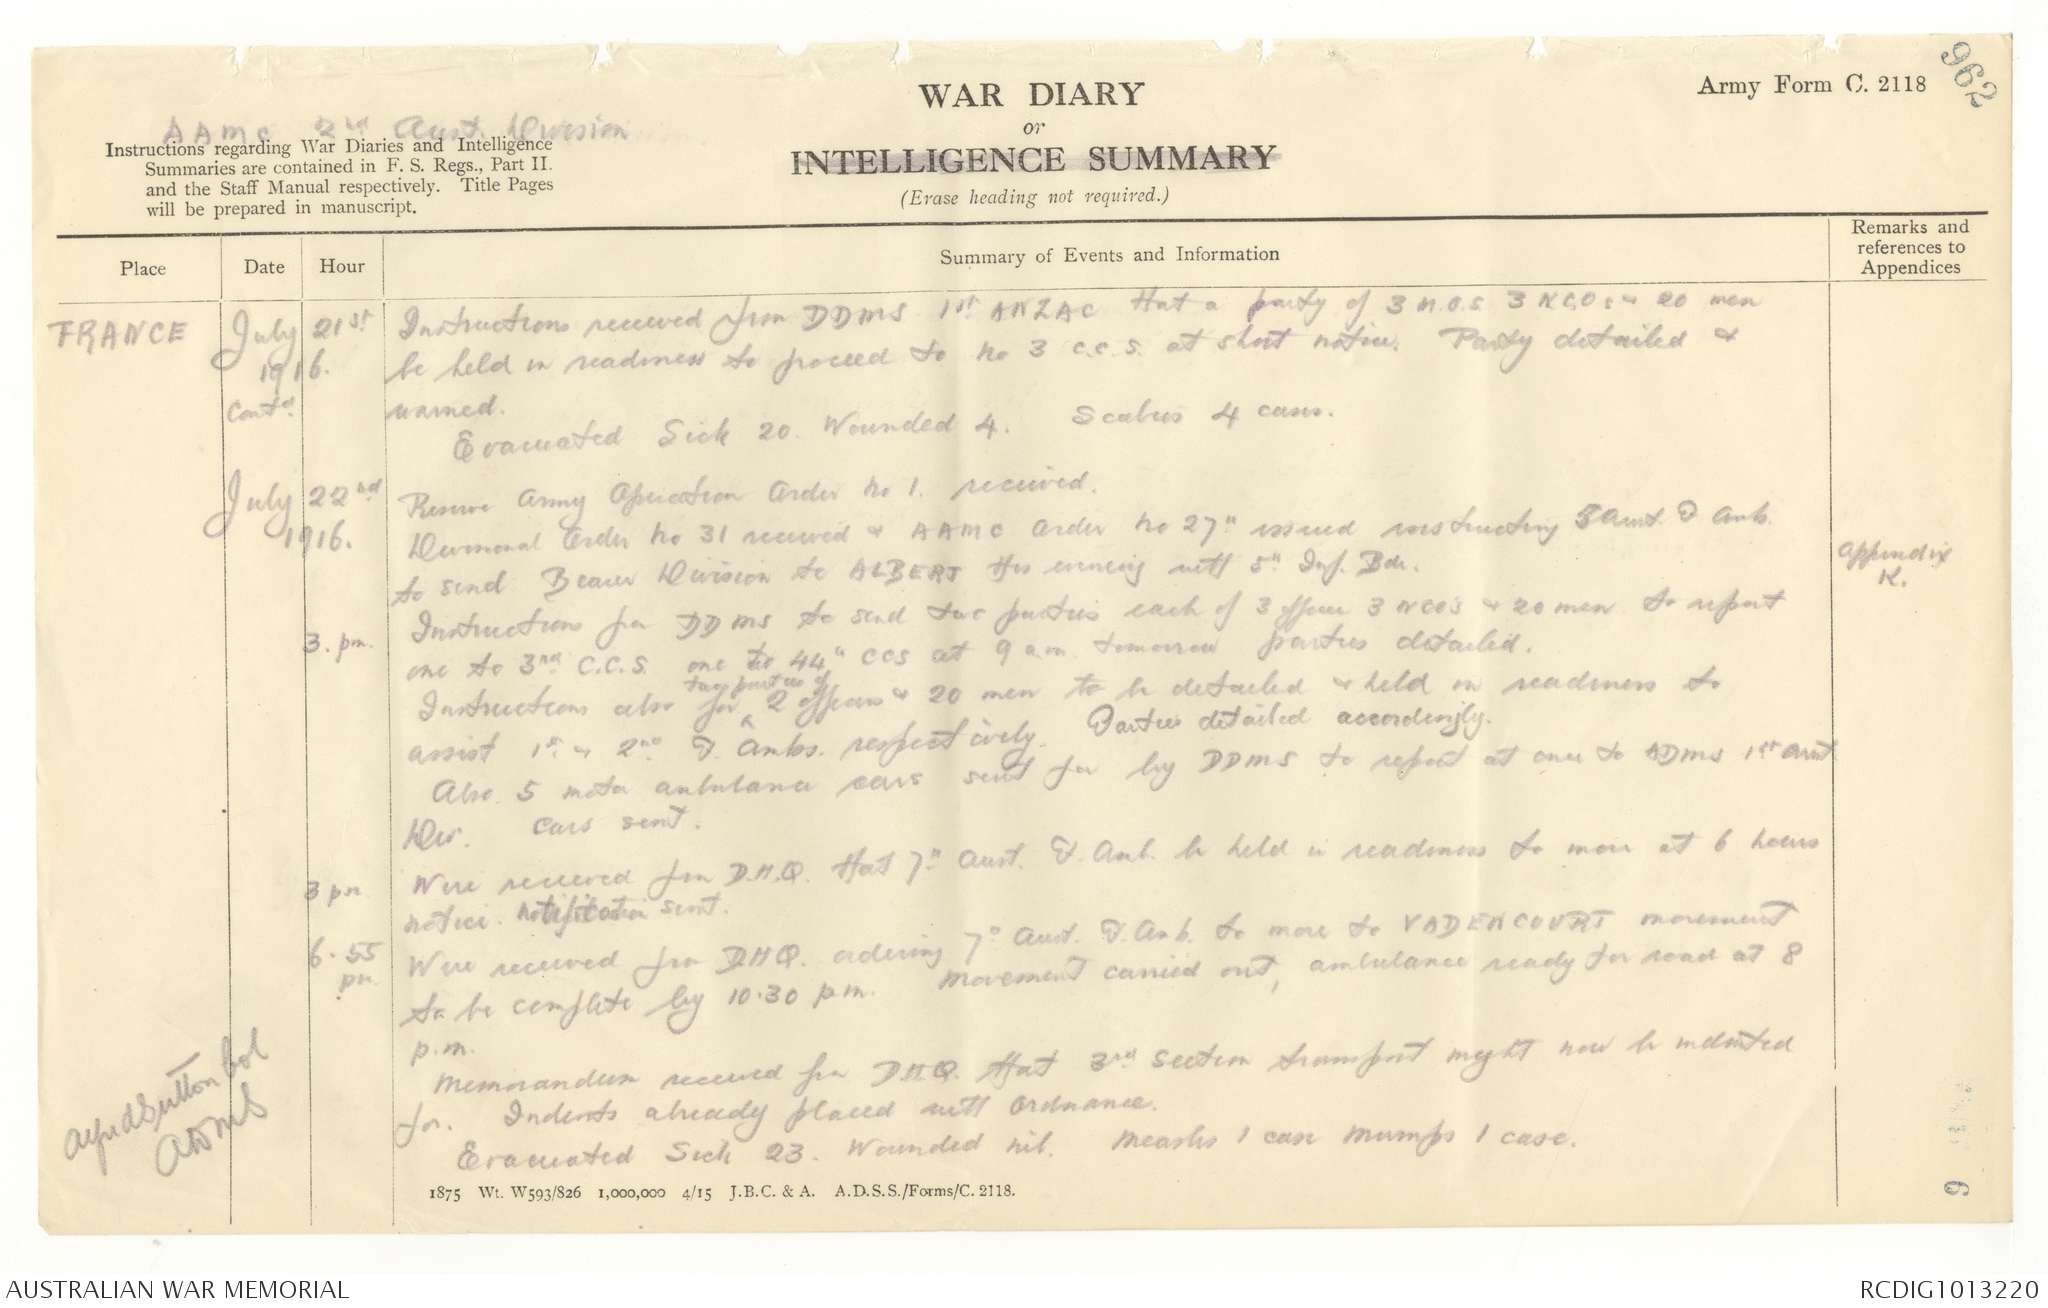 962
Army Form C. 2118
WAR DIARY
or
INTELLIGENCE SUMMARY
(Erase heading not required.)
AAMC 2nd Aust. Division
Instructions regarding War Diaries and Intelligence
Summaries are contained in F. S. Regs., Part II.
and the Staff Manual respectively. Title Pages
will be prepared in manuscript.
Place
Date
Hour
Summary of Events and Information
Remarks and
references to
Appendices
FRANCE
July 21st
1916.
Contd.
Instructions received from DDMS 1st ANZAC that a party of 3 M.O.s 3 NCOs & 20 men
be held in readiness to proceed to No 3 C.C.S. at short notice. Party detailed &
warned.
Evacuated Sick 20. Wounded 4. Scabies 4 cases.
July 22nd
1916.
Reserve Army Operation Order No 1. received.
Divisional Order No 31 received & AAMC Order No 27" issued instructing 5 Aust. F Amb.
to send Bearer Division to ALBERT this evening with 5th Inf. Bde.
Appendix
K.
3. pm.
Instructions fr DDMS to send two parties each of 3 officers 3 NCO's & 20 men to report
one to 3rd C.C.S. one to 44th CCS at 9 am tomorrow parties detailed.
two parties of
Instructions also for 2 officers & 20 men to be detailed & held in readiness to
assist 1st & 2nd F. Ambs. respectively. Parties detailed accordingly.
Also 5 motor ambulance cars sent for by DDMS to report at once to ADMS 1st Aust
Div. Cars sent.
3 pm
Wire received frm D.H.Q. that 7th Aust. F. Amb. be held in readiness to move at 6 hours
notice. Notification sent.
6.55
pm.
Wire received frm D.H.Q. ordering 7th Aust. F. Amb. to move to VADENCOURT movement
to be complete by 10.30 p.m. Movement carried out, ambulance ready for road at 8
p.m.
Memorandum received frm D.H.Q. that 3rd section transport might now be indented
for. Indents already placed with Ordnance.
Evacuated Sick 23. Wounded nil. Measles 1 case Mumps 1 case.
Alfred Sutton Col
ADMS
1875 Wt. W593/826 1,000,000 4/15 J.B.C. & A. A.D.S.S./Forms/C. 2118.
9
AUSTRALIAN WAR MEMORIAL
RCDIG1013220